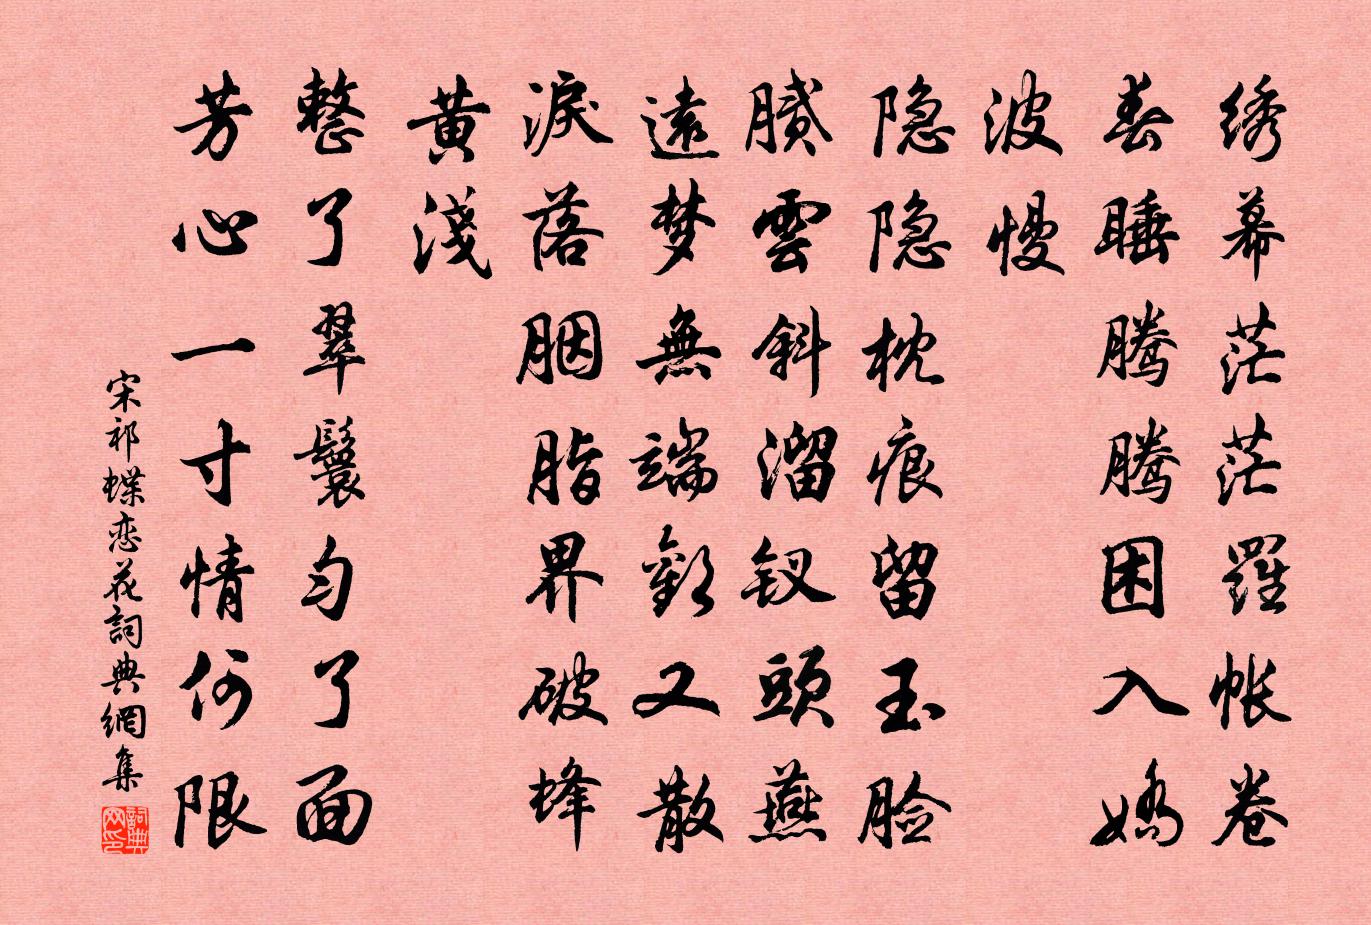 绣幕茫茫羅帐卷
春睡腾腾困入娇
波慢
隐隐枕痕留玉脸
腻雲斜溜钗頭燕
遠梦無端歡又散
淚落胭脂界破蜂
黄淺
整了翠鬟匀了面
芳心一寸情何限
宋祁蝶恋花詞典網集
詞典网印